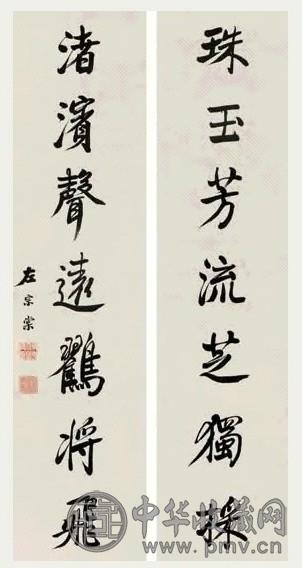 珠玉芳流芝獨採
渚濱聲遠鸛將飛
左宗棠
中华收藏网
www.pmv.cn